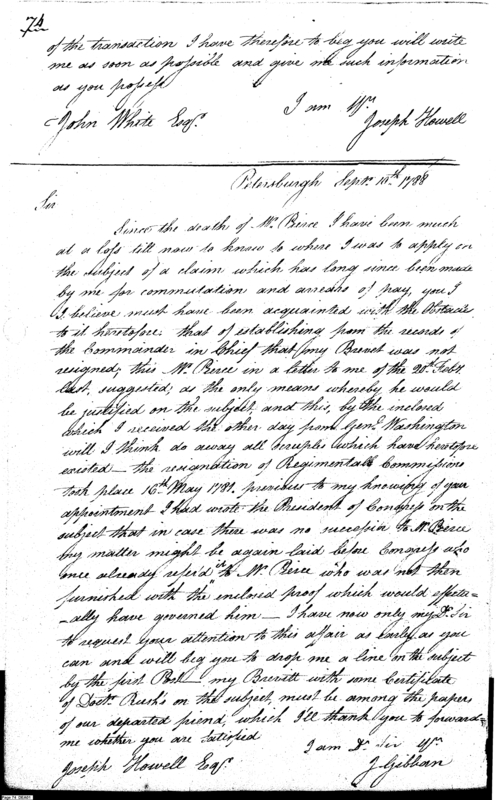 74
of the transaction I have therefore to beg you will write
me as soon as possible and give me such information
as you possess
I am Yrs
John White Esqr.
Joseph Howell
Petersburgh Septr. 10th 1788
Sir
Since the death of Mr. Pierce I have been much
at a loss till now to know to where I was to apply on
the subject of a claim which has long since been made
by me for commutation and arrears of pay, you I
I believe must have been acquainted with the Obstacle
to it heretofore. that of establishing from the records of
the Commander in Chief that my Brevet was not
resigned; this Mr. Pierce in a letter to me of the 20th. Feby.
last, suggested; as the only means whereby he would
be justified on the subject, and this, by the inclosed
which I received the other day from Genl. Washington
will I think do away all scruples which have heretofore
existed – the resignation of Regimentall Commissions
took place 16th May 1781. previous to my knowing of your
appointment I had wrote the President of Congress on the
subject that in case there was no successor to Mr. Pierce
my matter might be again laid before Congress who
once already refer'd it to Mr. Pierce who was not then
furnished with the inclosed proof which would effectu=
=ally have governed him – I have now only my Dr. Sir
to request your attention to this affair as Early as you
can and will beg you to drop me a line on the subject
by the first Post – my Brevitt with some Certificate
of Doctr. Rush's on the subject, must be among the papers
of our departed friend, which I'll thank you to forward
me whether you are satisfied
I am Dr Sir Yrs
Joseph Howell Esqr.
J. Gibbon